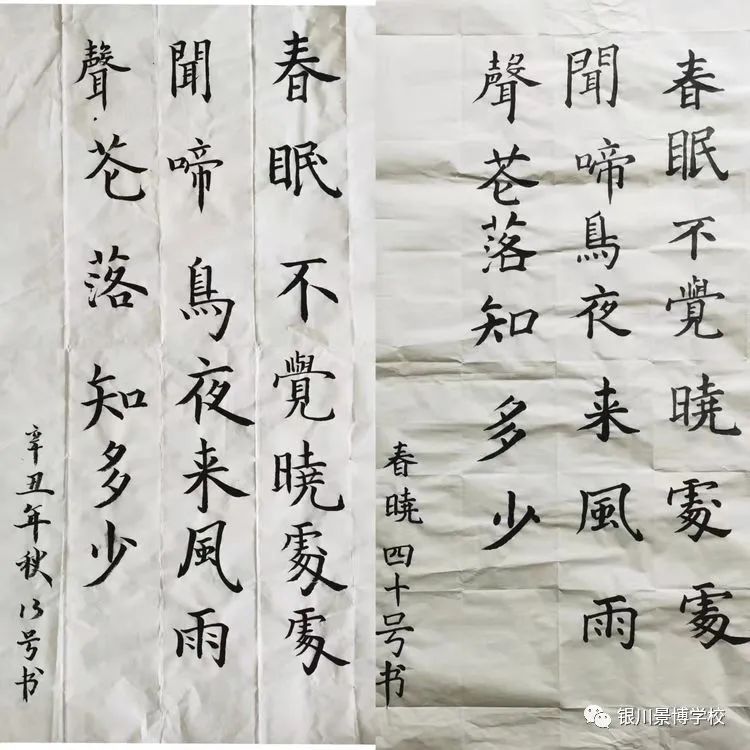 春眠不覺曉處處
聞啼鳥夜来風雨
聲花落知多少
辛丑年秋 13号书
春眠不覺曉處處
聞啼鳥夜来風雨
聲花落知多少
春曉 四十号书
银川景博学校